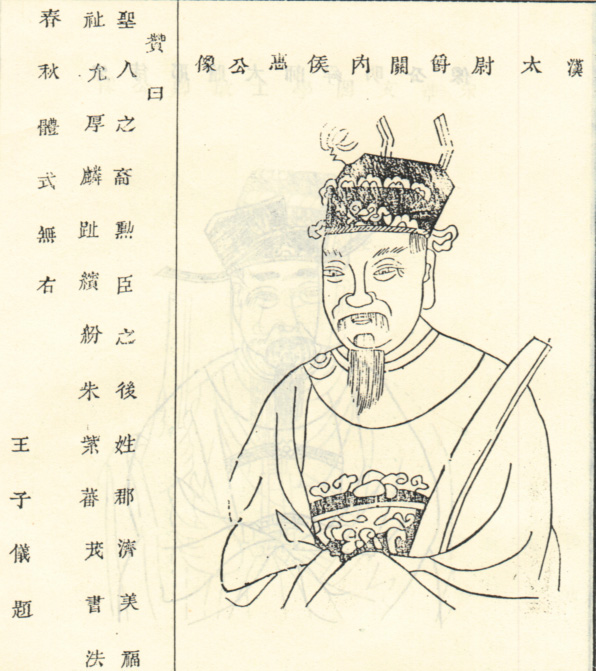 漢太尉爵關內侯公像
贊曰
聖人之裔勳臣之後姓郡濟美福
祉允厚麟趾繽紛朱紫蕃茂書法
春秋體式無右
王子儀題